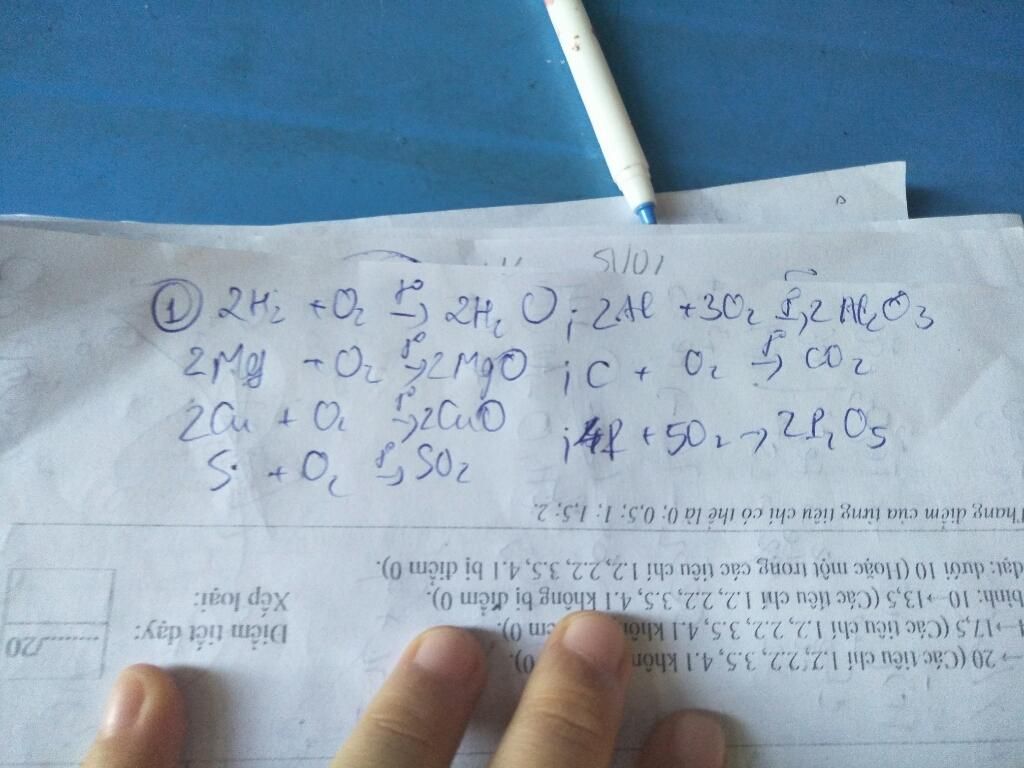 ① 2H₂ + O₂ t°→ 2H₂O ; 2Al + 3O₂ t°→ 2Al₂O₃
2Mg + O₂ t°→ 2MgO ; C + O₂ t°→ CO₂
2Cu + O₂ t°→ 2CuO ; 4P + 5O₂ → 2P₂O₅
S + O₂ t°→ SO₂
Thang điểm của từng tiêu chí có thể là 0; 0,5; 1; 1,5; 2.
đạt: dưới 10 (Hoặc một trong các tiêu chí 1.2, 2.2, 3.5, 4.1 bị điểm 0).
bình: 10→13,5 (Các tiêu chí 1.2, 2.2, 3.5, 4.1 không bị điểm 0).
→17,5 (Các tiêu chí 1.2, 2.2, 3.5, 4.1 0).
→ 20 (Các tiêu chí 1.2, 2.2, 3.5, 4.1 0).
Điểm tiết dạy: ........./20
Xếp loại: